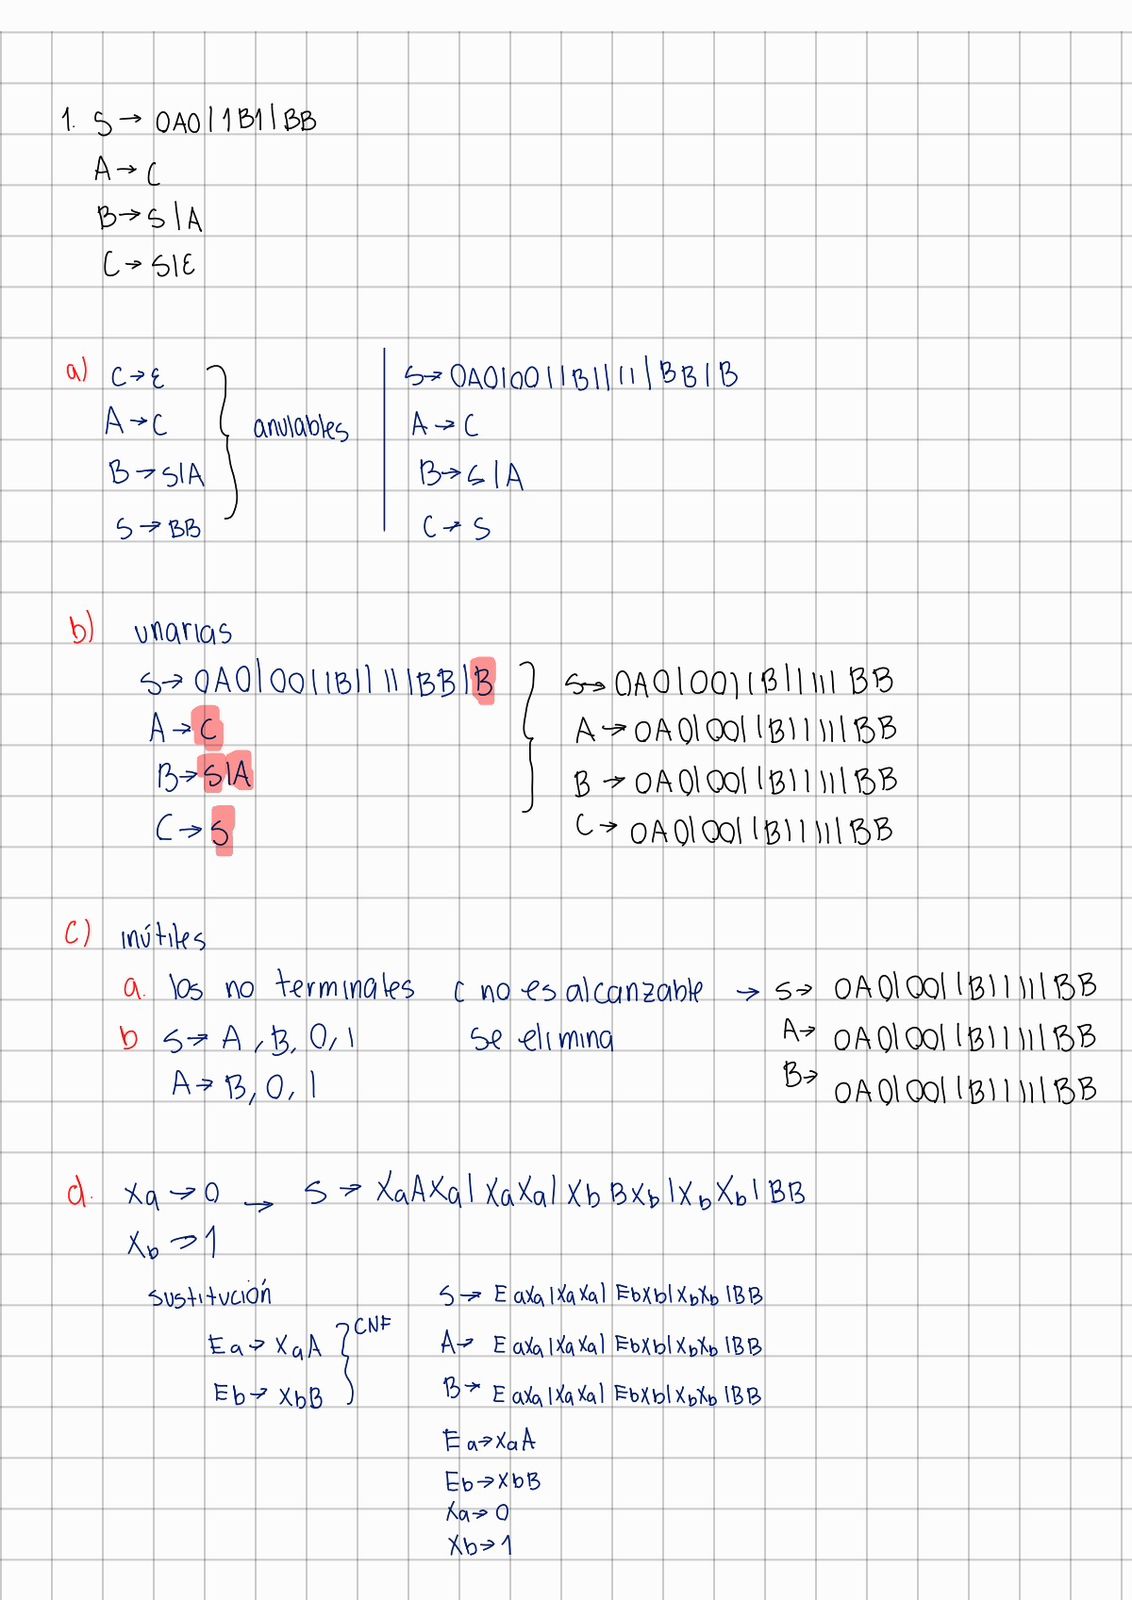 1. S → 0A0|1B1|BB
A → C
B → S|A
C → S|ε
a) C → ε
A → C
B → S|A
S → BB
anulables
S → 0A0|00|1B1|11|BB|B
A → C
B → S|A
C → S
b) unarias
S → 0A0|00|1B1|11|BB|B
A → C
B → S|A
C → S
S → 0A0|00|1B1|11|BB
A → 0A0|00|1B1|11|BB
B → 0A0|00|1B1|11|BB
C → 0A0|00|1B1|11|BB
c) inútiles
a. los no terminales C no es alcanzable → S → 0A0|00|1B1|11|BB
b S → A, B, 0, 1 se elimina A → 0A0|00|1B1|11|BB
A → B, 0, 1 B → 0A0|00|1B1|11|BB
d. Xa → 0 → S → XaAXa|XaXa|XbBXb|XbXb|BB
Xb → 1
sustitución
Ea → XaA
Eb → XbB
CNF
S → EaXa|XaXa|EbXb|XbXb|BB
A → EaXa|XaXa|EbXb|XbXb|BB
B → EaXa|XaXa|EbXb|XbXb|BB
Ea → XaA
Eb → XbB
Xa → 0
Xb → 1